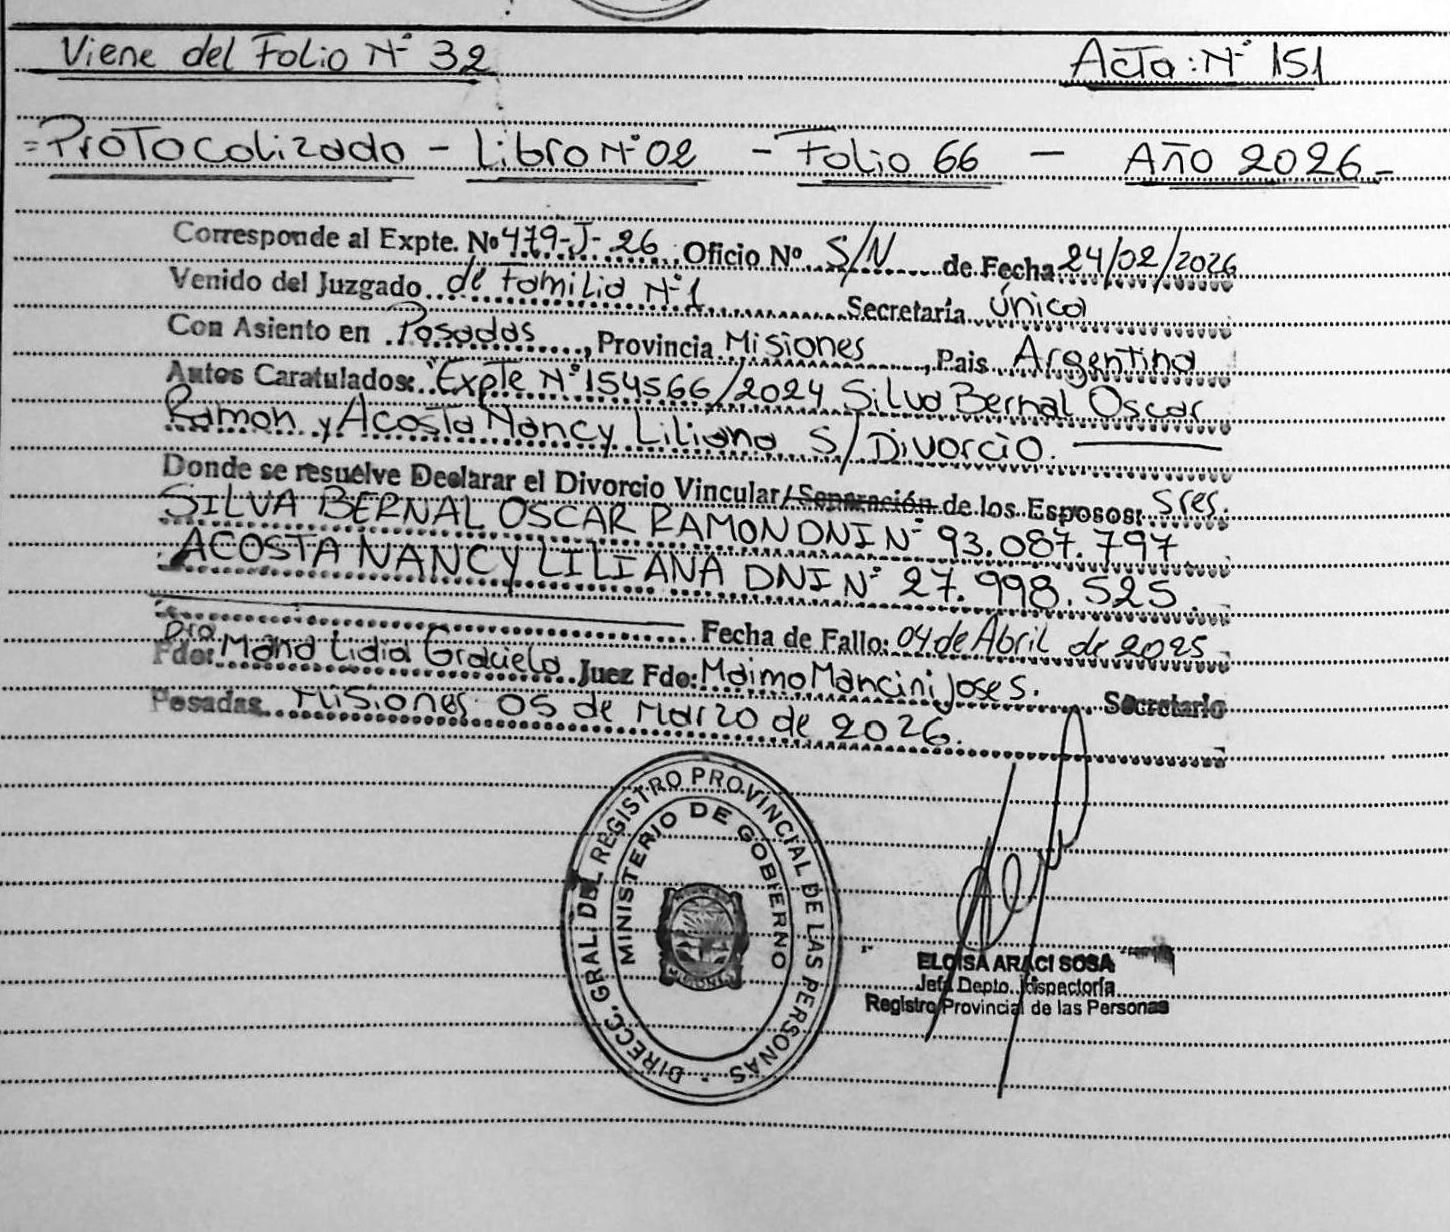 Viene del Folio N° 32
Acta: N° 151
=Protocolizado - Libro N° 02 - Folio 66 - Año 2026.-
Corresponde al Expte. Nº 479-J-26. Oficio Nº S/N de Fecha 24/02/2026
Venido del Juzgado de Familia N° 1 Secretaría Única
Con Asiento en Posadas, Provincia Misiones, Pais Argentina
Autos Caratulados: "Expte N° 154566/2024 Silva Bernal Oscar
Ramon y Acosta Nancy Liliana S/Divorcio.
Donde se resuelve Declarar el Divorcio Vincular/Separación de los Esposos: Sres.
SILVA BERNAL OSCAR RAMON DNI N° 93.087.797
ACOSTA NANCY LILIANA DNI N° 27.998.525.
Fecha de Fallo: 04 de Abril de 2025
Fdo: Dra Lidia Graciela Juez Fdo: Maimo Mancini Jose S. Secretario
Posadas, Misiones 05 de Marzo de 2026.
DIRECC. GRAL. DEL REGISTRO PROVINCIAL DE LAS PERSONAS -
MINISTERIO DE GOBIERNO
MISIONES
ELOISA ARACI SOSA
Jefa Depto. Inspectoría
Registro Provincial de las Personas